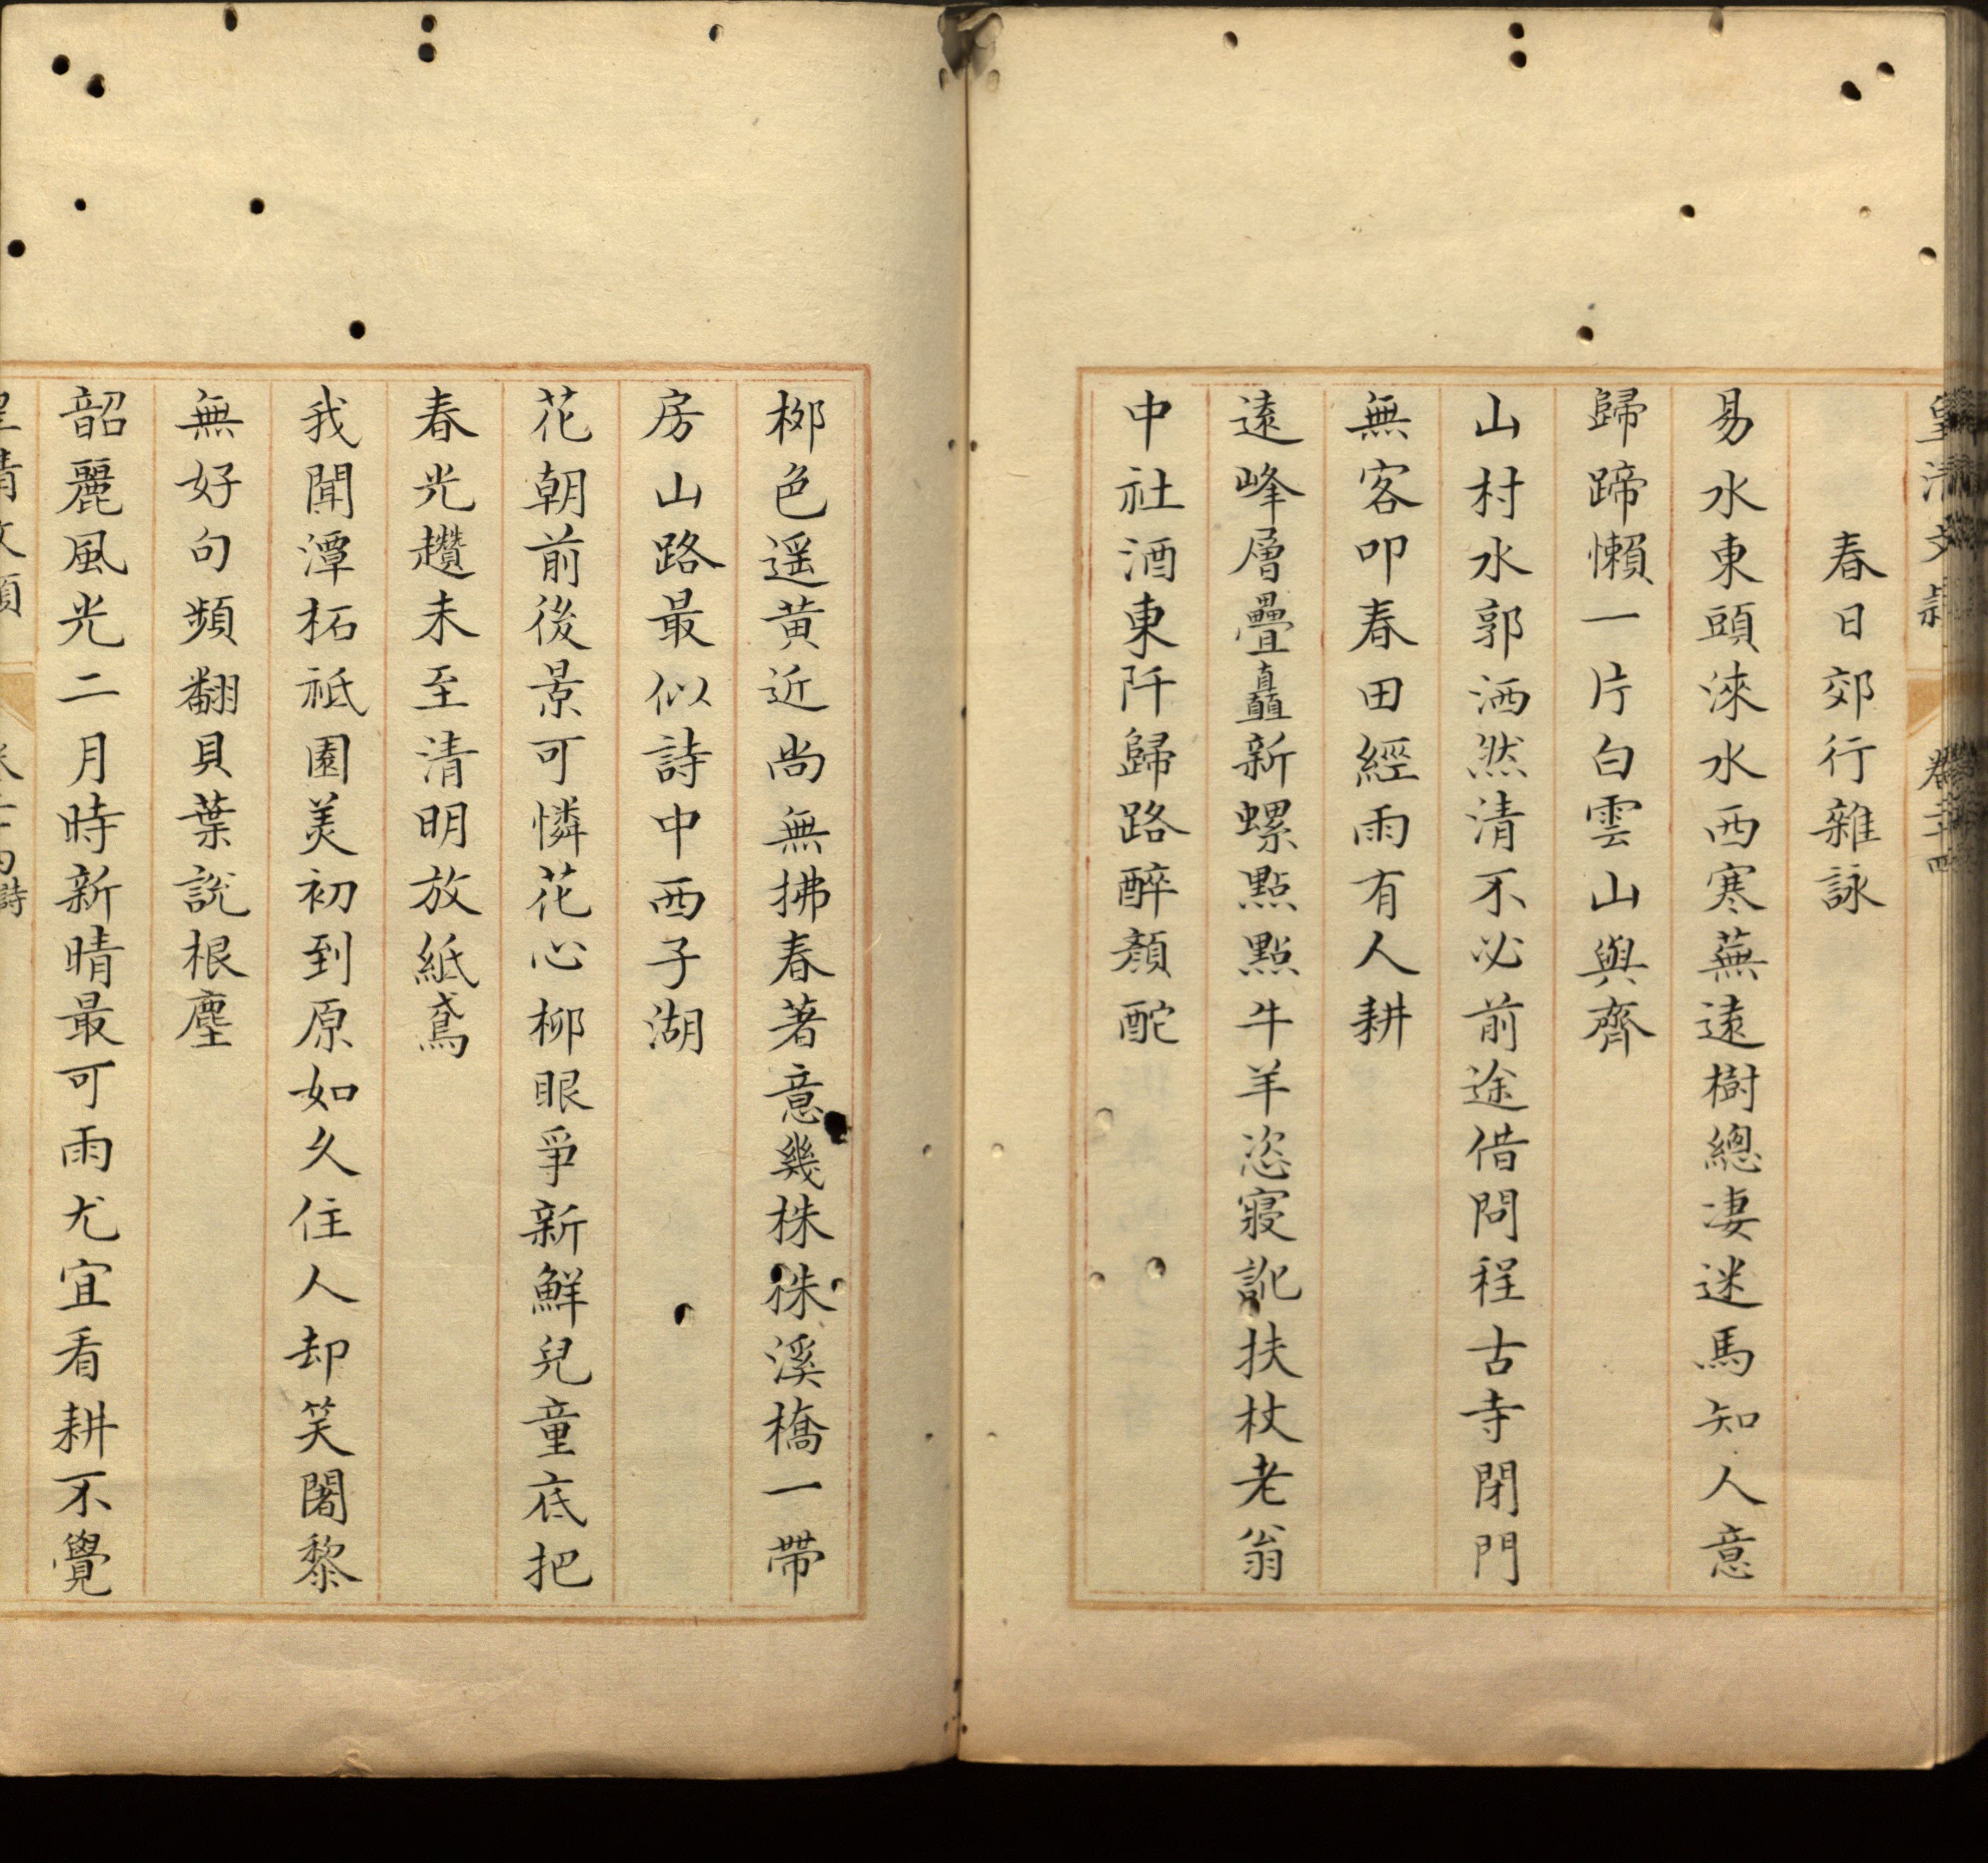 皇清文
卷二十四
春日郊行雜詠
易水東頭淶水西寒蕪遠樹總凄迷馬知人意
歸蹄懶一片白雲山與齊
山村水郭洒然清不必前途借問程古寺閉門
無客叩春田經雨有人耕
遠峰層疊矗新螺點點牛羊恣寢訛扶杖老翁
中社酒東阡歸路醉顏酡
栁色遥黄近尚無拂春著意幾株株溪橋一帶
房山路最似詩中西子湖
花朝前後景可憐花心柳眼爭新鮮兒童底把
春光趲未至清明放紙鳶
我聞潭柘祗園美初到原如久住人却笑闍黎
無好句頻翻貝葉說根塵
韶麗風光二月時新晴最可雨尤宜看耕不覺